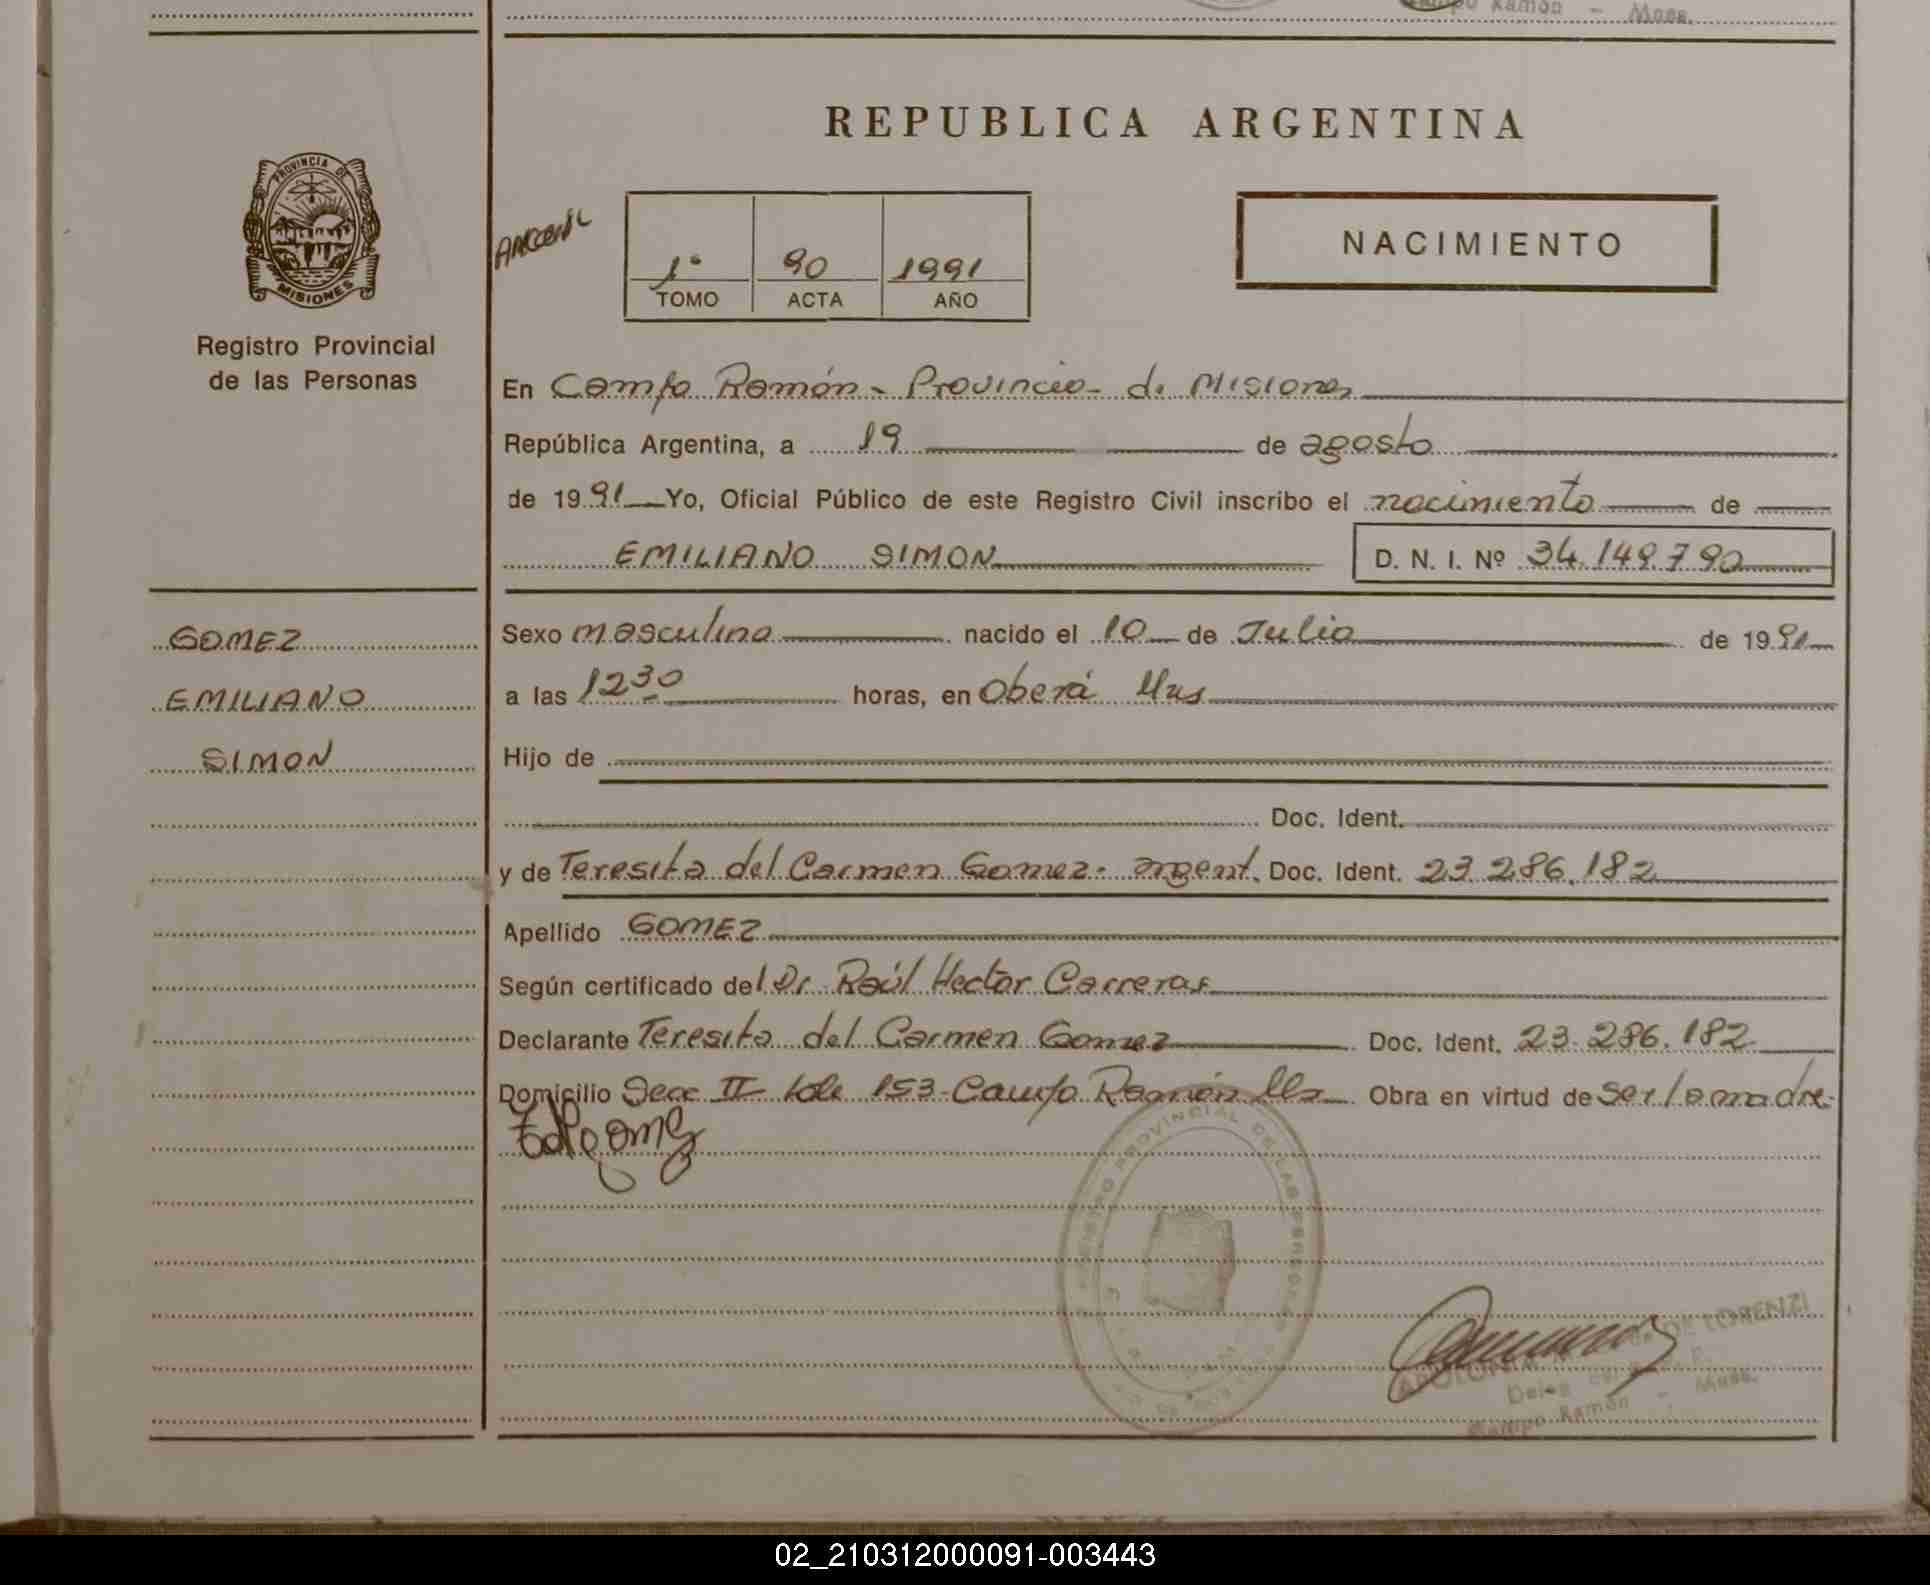 Campo Ramón - Mnes.
REPUBLICA ARGENTINA
PROVINCIA DE
MISIONES
Registro Provincial
de las Personas
1° 90 1991
TOMO ACTA AÑO
NACIMIENTO
En Campo Ramón - Provincia de Misiones
República Argentina, a 19 de agosto
de 1991 Yo, Oficial Público de este Registro Civil inscribo el nacimiento de
EMILIANO SIMON D. N. I. Nº 34.149.790
GOMEZ
EMILIANO
SIMON
Sexo masculino nacido el 10 de Julio de 1991
a las 12 30 horas, en Oberá Mnes
Hijo de
Doc. Ident.
y de Teresita del Carmen Gomez. argent. Doc. Ident. 23.286.182
Apellido GOMEZ
Según certificado del Dr Raúl Hector Carreras
Declarante Teresita del Carmen Gomez Doc. Ident. 23.286.182
Domicilio Secc II Lote 153-Campo Ramón Obra en virtud de ser la madre-
REGISTRO PROVINCIAL DE LAS PERSONAS
DE LORENZI
Campo Ramón - Mnes.
02_210312000091-003443